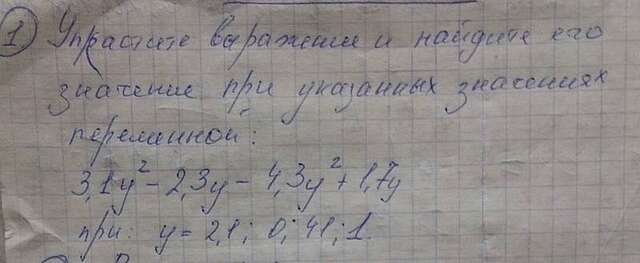 1 Упростите выражение и найдите его
значение при указанных значениях
переменной:
3,1y² - 2,3y - 4,3y² + 1,7y
при: y = 2,1; 0; 41; 1.